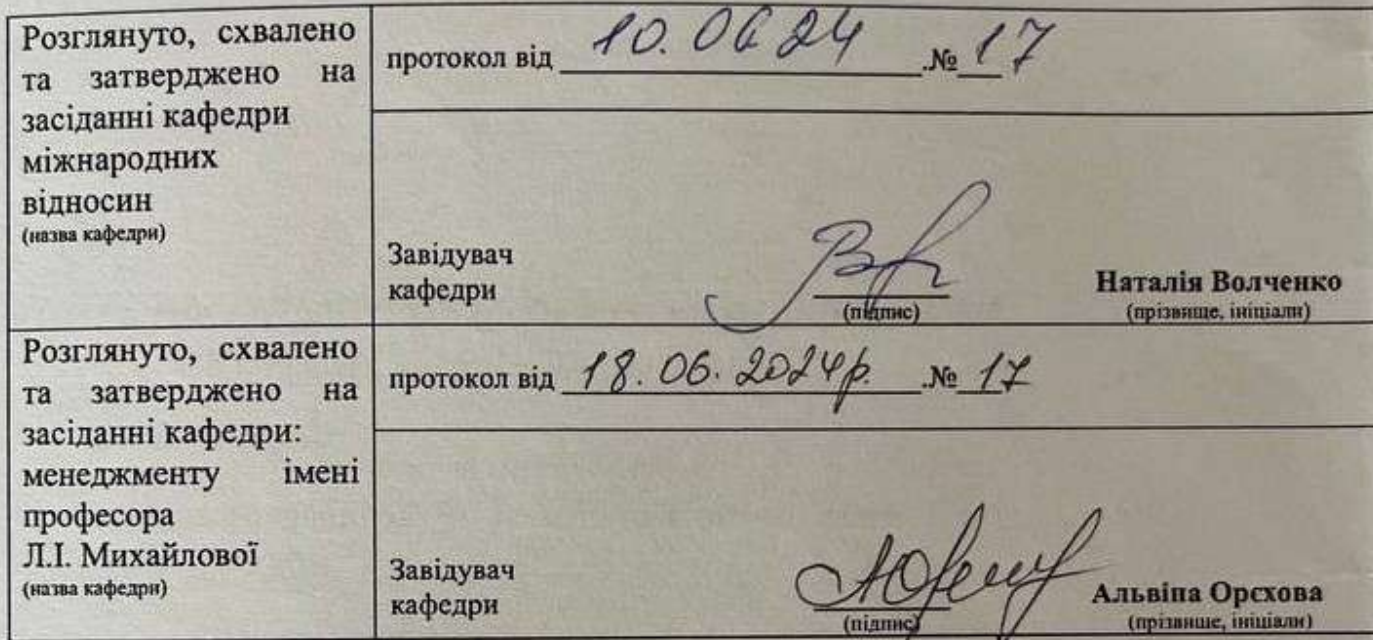 Розглянуто, схвалено
та затверджено на
засіданні кафедри
міжнародних
відносин
(назва кафедри)
протокол від 10.06 24 .№ 17
Завідувач
кафедри
(підпис)
Наталія Волченко
(прізвище, ініціали)
Розглянуто, схвалено
та затверджено на
засіданні кафедри:
менеджменту імені
професора
Л.І. Михайлової
(назва кафедри)
протокол від 18.06.2024р. .№ 17
Завідувач
кафедри
(підпис)
Альвіна Орєхова
(прізвище, ініціали)